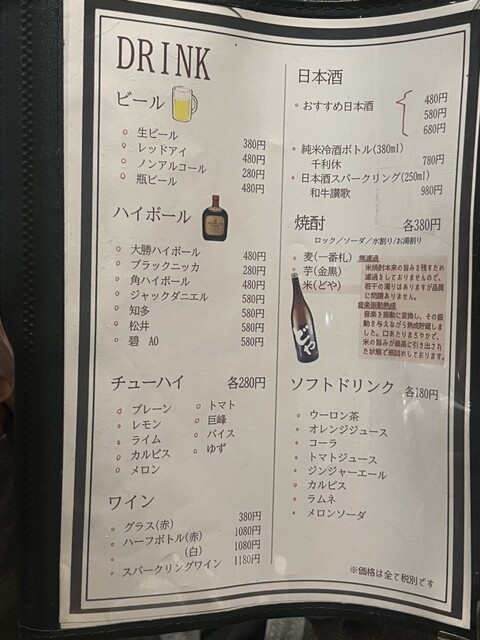 DRINK
ビール
生ビール 380円
レッドアイ 480円
ノンアルコール 280円
瓶ビール 480円
ハイボール
大勝ハイボール 480円
ブラックニッカ 280円
角ハイボール 480円
ジャックダニエル 580円
知多 580円
松井 580円
碧 AO 580円
チューハイ 各280円
プレーン
レモン
ライム
カルピス
メロン
トマト
巨峰
バイス
ゆず
ワイン
グラス(赤) 380円
ハーフボトル(赤) 1080円
(白) 1080円
スパークリングワイン 1180円
日本酒
おすすめ日本酒
480円
580円
680円
純米冷酒ボトル(380ml)
千利休 780円
日本酒スパークリング(250ml)
和牛讃歌 980円
焼酎 各380円
ロック／ソーダ／水割り/お湯割り
麦(一番札)
芋(金黒)
米(どや)
無濾過
米焼酎本来の旨みを残すため
濾過をしておりませんので、
若干の濁りはありますが品質
に問題ありません。
音楽振動熟成
音楽を振動に変換し、その振
動を与えながら熟成貯蔵しま
した。口あたりまろやかで、
米の旨みが最高に引き出され
た状態で瓶詰めしております。
どや
ソフトドリンク 各180円
ウーロン茶
オレンジジュース
コーラ
トマトジュース
ジンジャーエール
カルピス
ラムネ
メロンソーダ
※価格は全て税別です